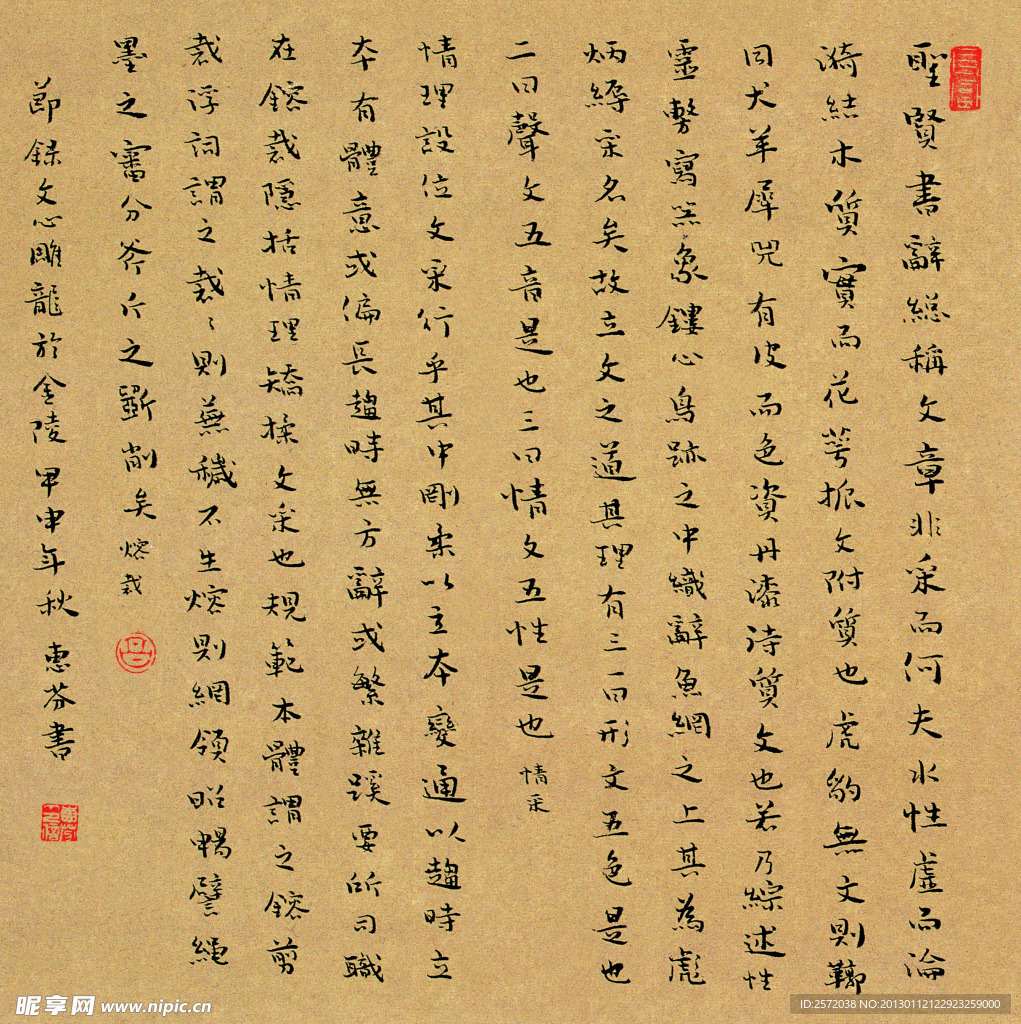 聖賢書辭總稱文章非采而何夫水性虛而淪
漪結木質實而花萼振文附質也虎豹無文則鞹
同犬羊犀兕有皮而色資丹漆詩質文也若乃綜述性
靈敷寫器象鏤心鳥跡之中織辭魚網之上其為彪
炳縟采名矣故立文之道其理有三一曰形文五色是也
二曰聲文五音是也三曰情文五性是也 情采
情理設位文采行乎其中剛柔以立本變通以趨時立
本有體意或偏長趨時無方辭或繁雜蹊要所司職
在鎔裁隱括情理矯揉文采也規範本體謂之鎔剪
裁浮詞謂之裁〻則蕪穢不生熔則網領昭暢譬繩
墨之審分斧斤之斲削矣 熔裁
節錄文心雕龍於金陵甲申年秋 惠芬書
昵享网 www.nipic.cn
ID:2572038 NO:20130112122923259000